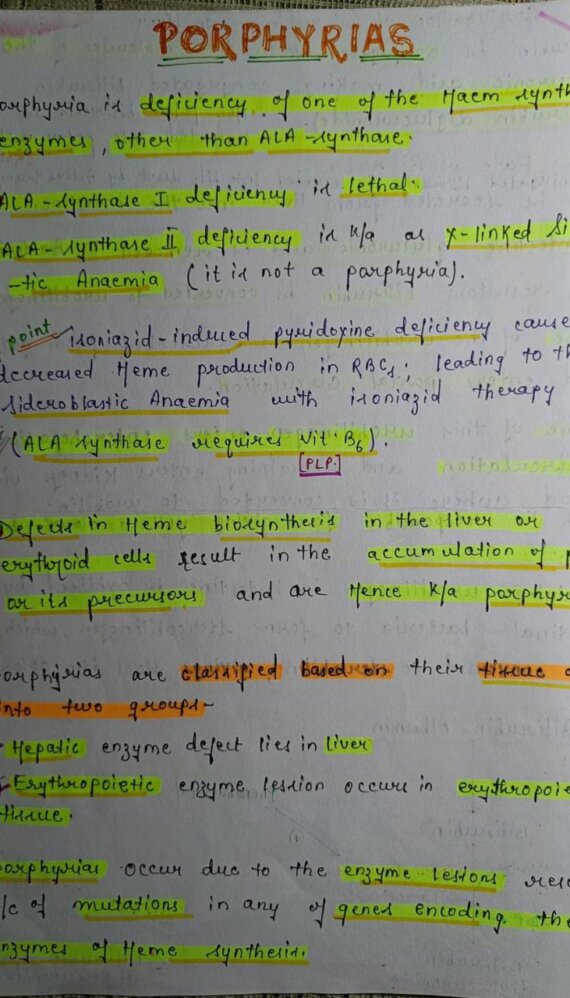 PORPHYRIAS
orphyria is deficiency of one of the Haem synth
enzymes, other than ALA-synthase.
ALA-synthase I deficiency is lethal.
ALA-synthase II deficiency is k/a as X-linked Si
-tic Anaemia (it is not a porphyria).
point isoniazid-induced pyridoxine deficiency cause
decreased Heme production in RBCs. leading to th
Sideroblastic Anaemia with isoniazid therapy
(ALA synthase requires Vit B6).
[PLP.]
Defects in Heme biosynthesis in the liver or
erythroid cells result in the accumulation of p
or its precursors and are Hence k/a porphyr
orphyrias are classified based on their tissue o
into two groups-
Hepatic enzyme defect lies in liver
Erythropoietic enzyme lession occurs in erythropoie
tissue.
porphyrias occur due to the enzyme lesions res
b/c of mutations in any of genes encoding the
enzymes of Heme synthesis.